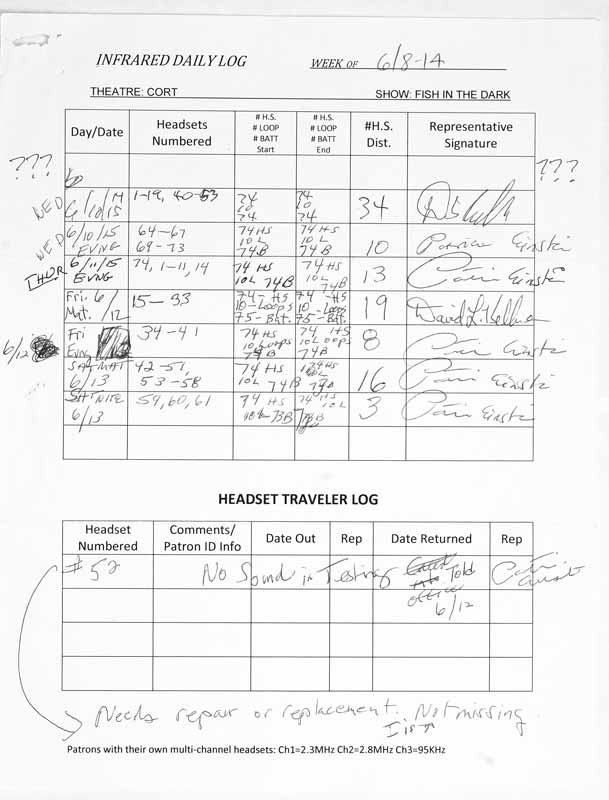 INFRARED DAILY LOG WEEK OF 6/8-14
THEATRE: CORT SHOW: FISH IN THE DARK
Day/Date Headsets Numbered # H.S. # LOOP # BATT Start # H.S. # LOOP # BATT End #H.S. Dist. Representative Signature
??? ???
WED 6/10/15 M 1-19, 40-53 74 10 74 74 10 74 34
WED 6/10/15 EVNG 64-67 69-73 74 HS 10 L 74B 74 HS 10 L 74B 10 Patricia Einstein
THUR 6/11/15 EVNG 74, 1-11, 14 74 HS 10L 74B 74 HS 10L 74B 13 Einstein
Fri. 6/12 Mat. 15-33 74-HS 10-Loops 75-Bat. 74-HS 10-Loops 75-Bat. 19 David L. Kellman
6/12 Fri Evng 34-41 74 HS 10 Loops 74B 74 HS 10 Loops 74B 8 Einstein
SAT MAT 6/13 42-51, 53-58 74 HS 10L 74B 74 HS 10L 74B 16 Einstein
SAT NITE 6/13 59, 60, 61 74 HS 10L 73B 74 HS 10L 3 Einstein
HEADSET TRAVELER LOG
Headset Numbered Comments/ Patron ID Info Date Out Rep Date Returned Rep
#52 No Sound in Testing Told office 6/12
Needs repair or replacement. Not missing
Patrons with their own multi-channel headsets: Ch1=2.3MHz Ch2=2.8MHz Ch3=95KHz